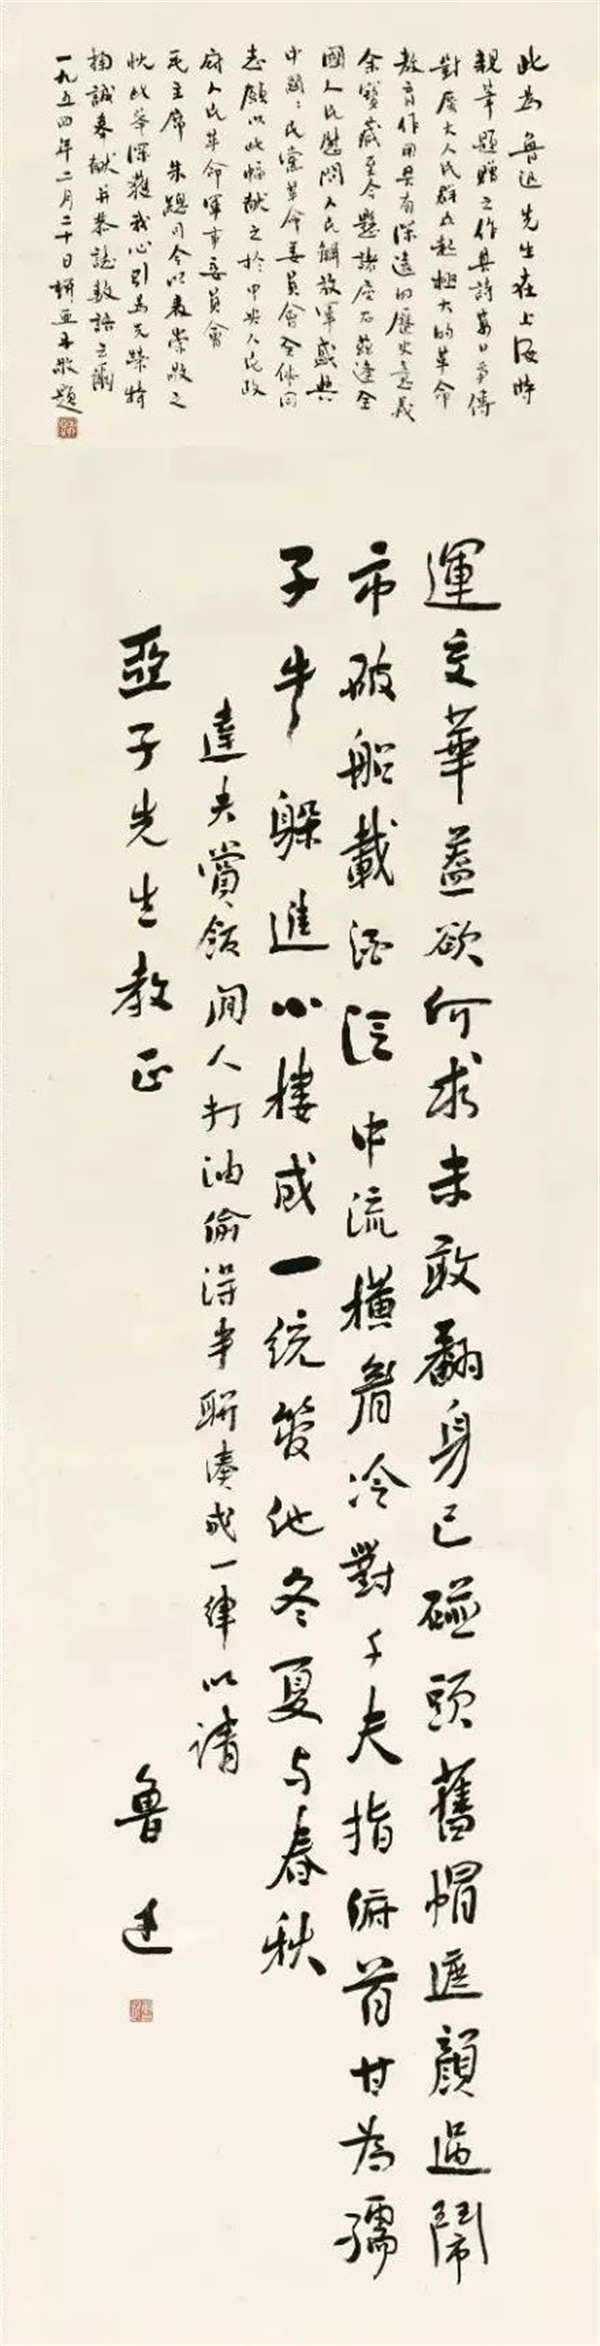 此為魯迅先生在上海時
親筆題贈之作其詩萬口爭傳
對廣大人民群众起極大的革命
教育作用具有深遠的歷史意義
余寶藏至今懸諸座右茲逢全
國人民慰問人民解放軍盛典
中國〻民黨革命委員會全体同
志願以此幅献之於中央人民政
府人民革命軍事委員會
毛主席朱總司令以表崇敬之
忱此舉深獲我心引為榮特
掬誠奉献并恭誌數語云爾
一九五四年二月二十日柳亞子敬題
運交華蓋欲何求未敢翻身已碰頭舊帽遮顏過鬧
市破船載酒泛中流橫眉冷對千夫指俯首甘為孺
子牛躲進小樓成一統管他冬夏与春秋
達夫賞飯閒人打油偷得半聯湊成一律以請
亞子先生教正
魯迅